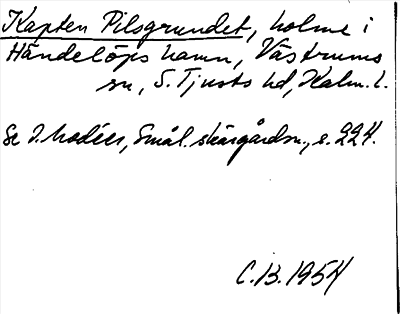 Kapten Pilsgrundet, holme i
Händelöps hamn, Västrums
sn, S. Tjusts hd, Kalm. l.
Se I. Modéer, Smål. skärgårdsn., s. 224.
C.B. 1954